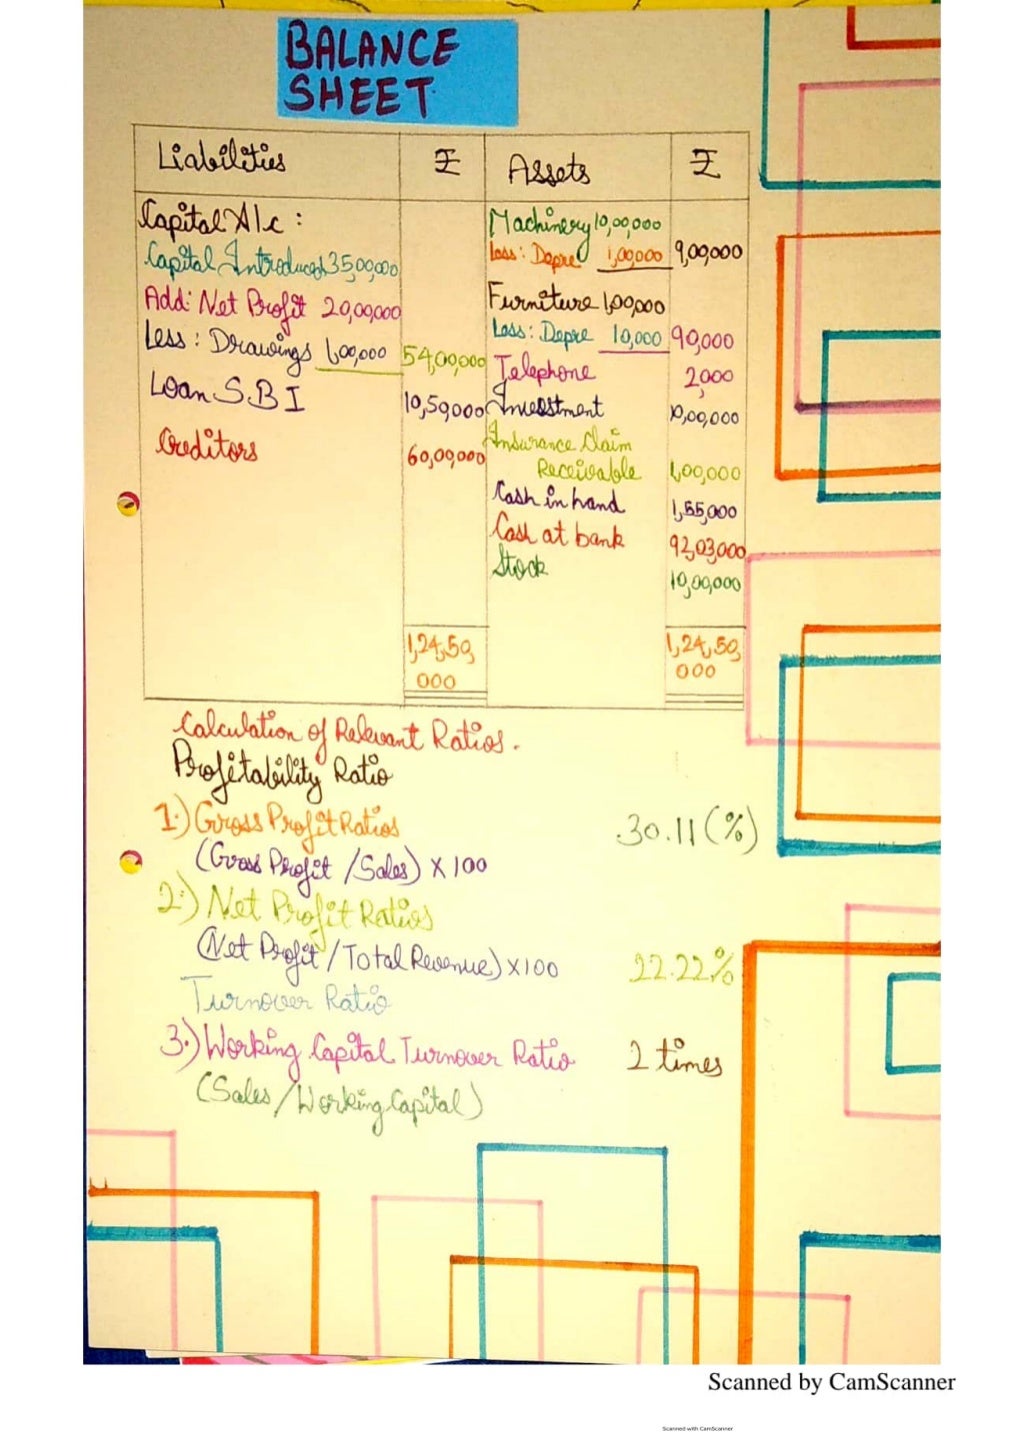 BALANCE
SHEET
Liabilities ₹ Assets ₹
Capital A/c :
Capital Introduced 35,00,000
Add: Net Profit 20,00,000
Less: Drawings 1,00,000 54,00,000
Loan SBI 10,50,000
Creditors 60,00,000
Machinery 10,00,000
Less: Depre 1,00,000 9,00,000
Furniture 1,00,000
Less: Depre 10,000 90,000
Telephone 2,000
Investment 10,00,000
Insurance Claim
Receivable 1,00,000
Cash in hand 1,55,000
Cash at bank 92,03,000
Stock 10,00,000
1,24,50, 1,24,50,
000 000
Calculation of Relevant Ratios.
Profitability Ratio
1.) Gross Profit Ratios 30.11 (%)
(Gross Profit / Sales) x 100
2.) Net Profit Ratios
(Net Profit / Total Revenue) x 100 22.22%
Turnover Ratio
3.) Working Capital Turnover Ratio 2 times
(Sales / Working Capital)
Scanned by CamScanner
Scanned with CamScanner